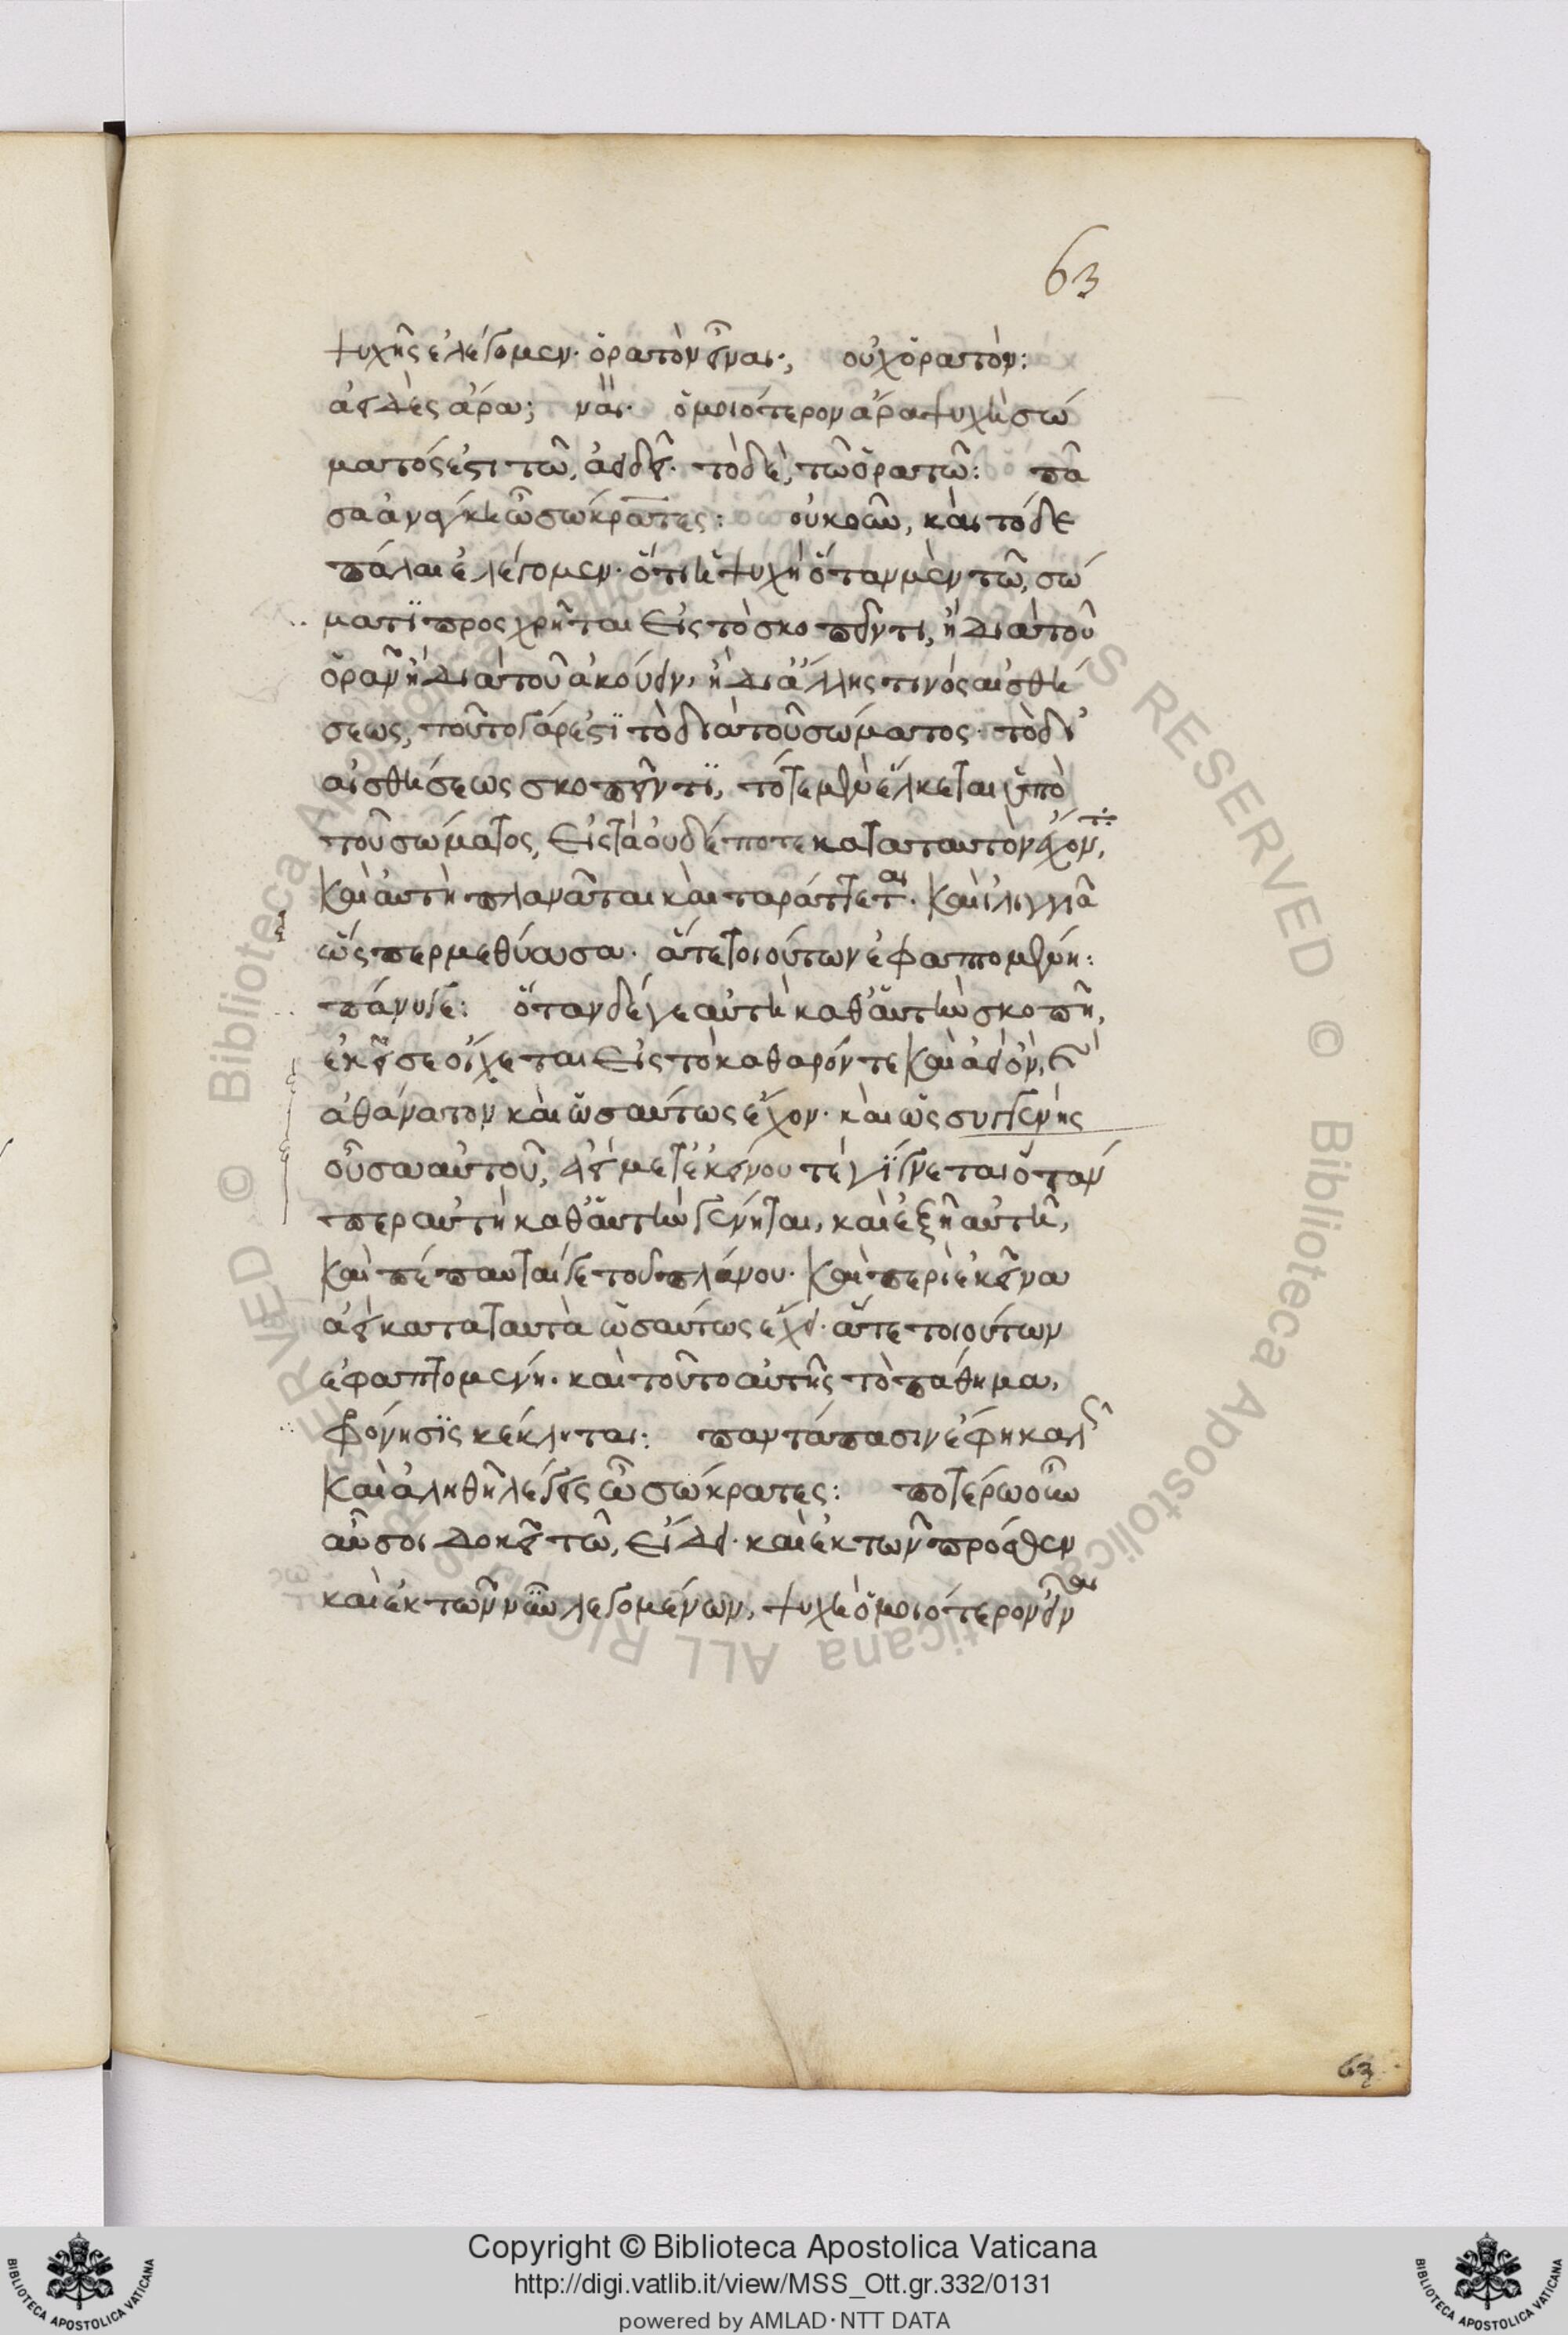 63
ψυχῆς ἐλέγομεν· ὁρατὸν εἶναι·, οὐχ ὁρατὸν:
ἀειδὲς ἄρα; ναί· ὁμοιότερον ἄρα ψυχὴ σώ
ματός ἐστι τῶ, ἀειδεῖ· τὸ δὲ, τῶ ὁρατῶ: πᾶ
σα ἀνάγκη ὦ σώκρατες: οὐκοῦν, καὶ τόδε
πάλαι ἐλέγομεν· ὅτι ἡ ψυχὴ ὅταν μὲν τῶ, σώ
ματι προσχρῆται εἰς τὸ σκοπεῖν τι, ἢ διὰ τοῦ
ὁρᾶν ἢ διὰ τοῦ ἀκούειν, ἢ δι' ἄλλης τινός αἰσθή
σεως, τοῦτο γάρ ἐστι τὸ διὰ τοῦ σώματος· τὸ δι'
αἰσθήσεως σκοπεῖν τι, τότε μὲν ἕλκεται ὑπὸ
τοῦ σώματος, εἰς τὰ οὐδέποτε κατὰ ταυτὸν ἔχον,
καὶ αὐτὴ πλανᾶται καὶ ταράττεται· καὶ ἰλιγγιᾶ
ὥσπερ μεθύουσα· ἅτε τοιούτων ἐφαπτομένη:
πάνυ γε: ὅταν δέ γε αὐτὴ καθ' αὑτὴν σκοπῆ,
ἐκεῖσε οἴχεται εἰς τὸ καθαρόν τε καὶ ἀεὶ ὂν, καὶ
ἀθάνατον καὶ ὡσαύτως ἔχον· καὶ ὡς συγγενὴς
οὖσα αὐτοῦ, ἀεί μετ' ἐκείνου τὲ γίγνεται ὅταν
περ αὐτὴ καθ' αὑτὴν γένηται, καὶ ἐξῆ αὐτῆ,
καὶ πέπαυταί γε τοῦ πλάνου· καὶ περὶ ἐκεῖνα
ἀεί κατὰ ταυτὰ ὡσαύτως ἔχει· ἅτε τοιούτων
ἐφαπτομένη· καὶ τοῦτο αὐτῆς τὸ πάθημα,
φρόνησις κέκληται: παντάπασιν ἔφη καλῶς
καὶ ἀληθῆ λέγεις ὦ σώκρατες: ποτέρω οὖν
αὖ σοι δοκεῖ τῶ, εἴδει· καὶ ἐκ τῶν πρόσθεν
καὶ ἐκ τῶν νῦν λεγομένων, ψυχὴ ὁμοιότερον εἶναι
63
Copyright © Biblioteca Apostolica Vaticana
http://digi.vatlib.it/view/MSS_Ott.gr.332/0131
powered by AMLAD·NTT DATA